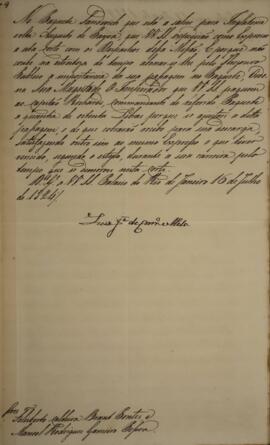 No Paquete Sandwich que vai a sahir para Inglaterra
volta Augusto de Paiva, que VV. SS. expedirão como Expresso
a esta Corte com os Despachos dessa Missão. E porque não
coube na estreiteza do tempo abonar-se lhe pelo Thesouro
Publico a importancia da sua passagem no Paquete, Orde-
na Sua Magestade O Imperador que VV. SS. paguem
ao Capitão commandante do referido Paquete
a quantia de oitenta Libras porque se ajustou a dita
passagem, e de que cobrarão recibo para sua descarga,
satisfazendo outro sim ao mesmo Expresso o que houver
vencido, segundo o estylo, durante a sua carreira, pelo
tempo que se demorou nesta Corte.
D.s G.e a VV. SS. Palacio do Rio de Janeiro 16 de Julho
de 1824.
Luiz J.e de Carv.o e Mello
Snr.es
Felisberto Caldeira Brant Pontes, e
Manoel Rodrigues Gameiro Pessoa